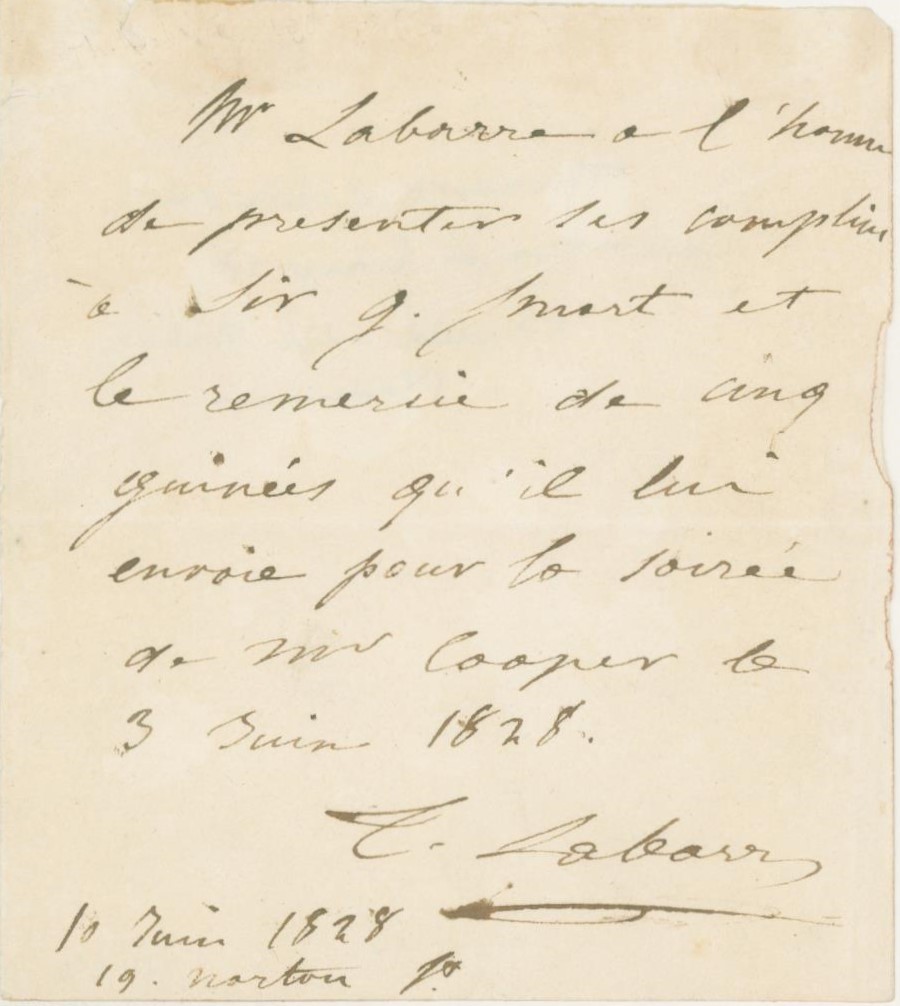 Mr Labarre a l'honn
de presenter ses complim
à Sir g. Smart et
le remercie de cinq
guinées qu'il lui
envoie pour la soirée
de Mr Cooper le
3 Juin 1828.
T. Labarre
10 Juin 1828
19. norton St